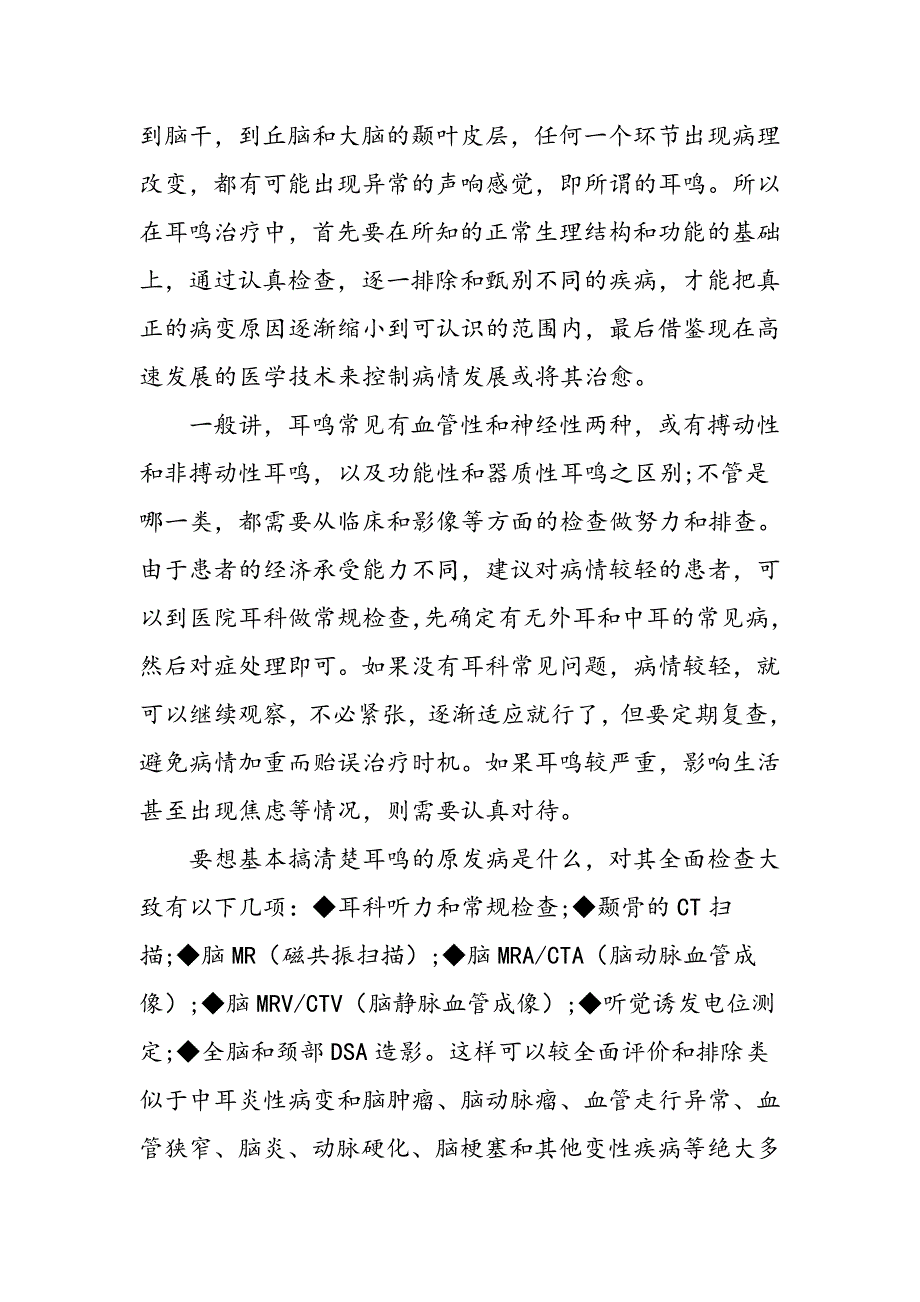 到脑干，到丘脑和大脑的颞叶皮层，任何一个环节出现病理
改变，都有可能出现异常的声响感觉，即所谓的耳鸣。所以
在耳鸣治疗中，首先要在所知的正常生理结构和功能的基础
上，通过认真检查，逐一排除和甄别不同的疾病，才能把真
正的病变原因逐渐缩小到可认识的范围内，最后借鉴现在高
速发展的医学技术来控制病情发展或将其治愈。
一般讲，耳鸣常见有血管性和神经性两种，或有搏动性
和非搏动性耳鸣，以及功能性和器质性耳鸣之区别;不管是
哪一类，都需要从临床和影像等方面的检查做努力和排查。
由于患者的经济承受能力不同，建议对病情较轻的患者，可
以到医院耳科做常规检查,先确定有无外耳和中耳的常见病，
然后对症处理即可。如果没有耳科常见问题，病情较轻，就
可以继续观察，不必紧张，逐渐适应就行了，但要定期复查，
避免病情加重而贻误治疗时机。如果耳鸣较严重，影响生活
甚至出现焦虑等情况，则需要认真对待。
要想基本搞清楚耳鸣的原发病是什么，对其全面检查大
致有以下几项：◆耳科听力和常规检查;◆颞骨的CT扫
描;◆脑MR（磁共振扫描）;◆脑MRA/CTA（脑动脉血管成
像）;◆脑MRV/CTV（脑静脉血管成像）;◆听觉诱发电位测
定;◆全脑和颈部DSA造影。这样可以较全面评价和排除类
似于中耳炎性病变和脑肿瘤、脑动脉瘤、血管走行异常、血
管狭窄、脑炎、动脉硬化、脑梗塞和其他变性疾病等绝大多